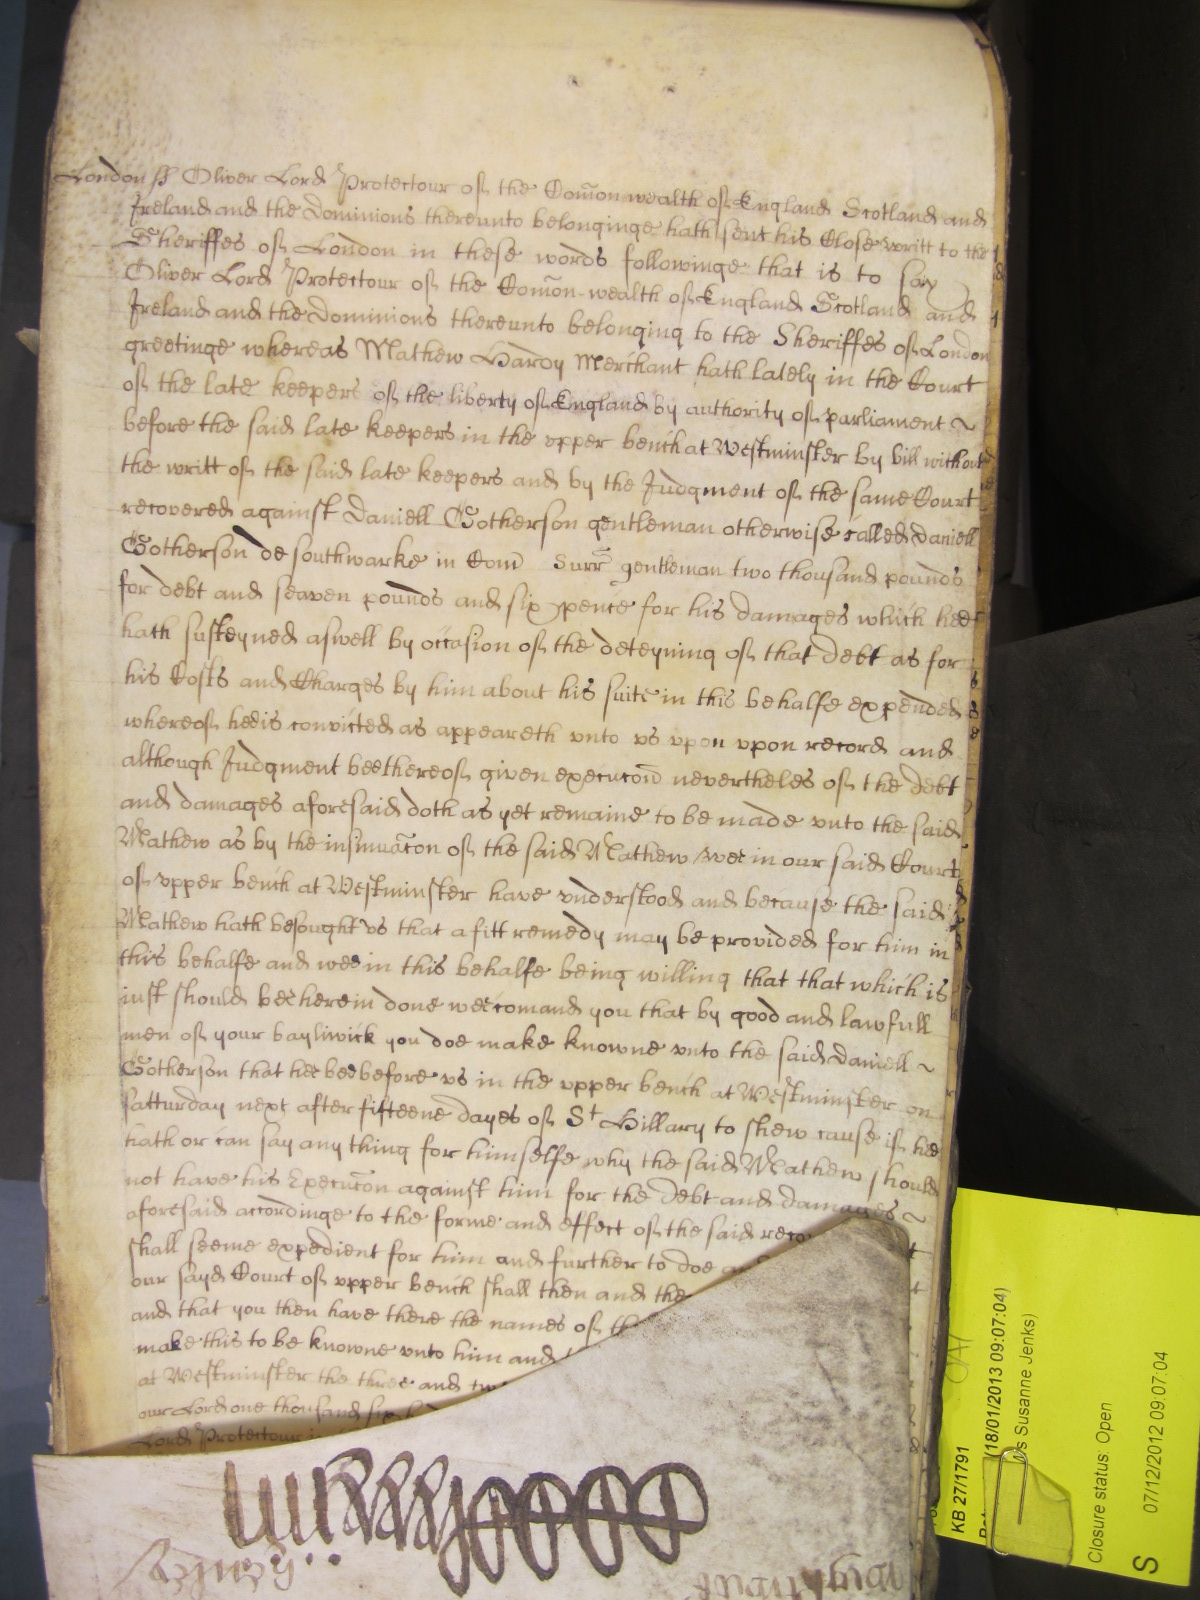 London ss Oliver Lord Protectour of the Com̄on-wealth of England Scotland and
Ireland and the Dominions thereunto belonginge hath sent his Close writt to the
Sheriffes of London in these words followinge that is to say
Oliver Lord Protectour of the Com̄on-wealth of England Scotland and
Ireland and the Dominions thereunto belonging to the Sheriffes of London
greetinge whereas Mathew Hardy Merchant hath lately in the Court
of the late keepers of the liberty of England by authority of parliament ~
before the said late keepers in the vpper bench at Westminster by bill without
the writt of the said late keepers and by the Judgment of the same Court
recovered against Daniell Gotherson gentleman otherwise called Daniell
Gotherson de southwarke in Com̄ Surr̄ gentleman two thousand pounds
for debt and seaven pounds and six pence for his damages which hee
hath susteyned aswell by occasion of the deteyning of that debt as for
his Costs and Charges by him about his suite in this behalfe expended
whereof hee is convicted as appeareth vnto vs vpon vpon record and
although Judgment bee thereof given execucōn nevertheles of the debt
and damages aforesaid doth as yet remaine to be made vnto the said
Mathew as by the insinuac̄on of the said Mathew wee in our said Court
of vpper bench at Westminster have vnderstood and because the said
Mathew hath besought vs that a fitt remedy may be provided for him in
this behalfe and wee in this behalfe being willing that that which is
iust should bee herein done wee comand you that by good and lawfull
men of your bayliwick you doe make knowne vnto the said Daniell ~
Gotherson that hee bee before vs in the vpper bench at Westminster on
satturday next after fifteene dayes of St Hillary to shew cause if hee
hath or can say any thing for himselfe why the said Mathew should
not have his Execuc̄on against him for the debt and damages ~
aforesaid accordinge to the forme and effect of the said reco
shall seeme expedient for him and further to doe a
our sayd Court of vpper bench shall then and the
and that you then have there the names of th
make this to be knowne vnto him and
at Westminster the three and tw
our Lord one thousand six h
Lord Protectour
KB 27/1791
(18/01/2013 09:07:04)
Ms Susanne Jenks)
Closure status: Open
S 07/12/2012 09:07:04